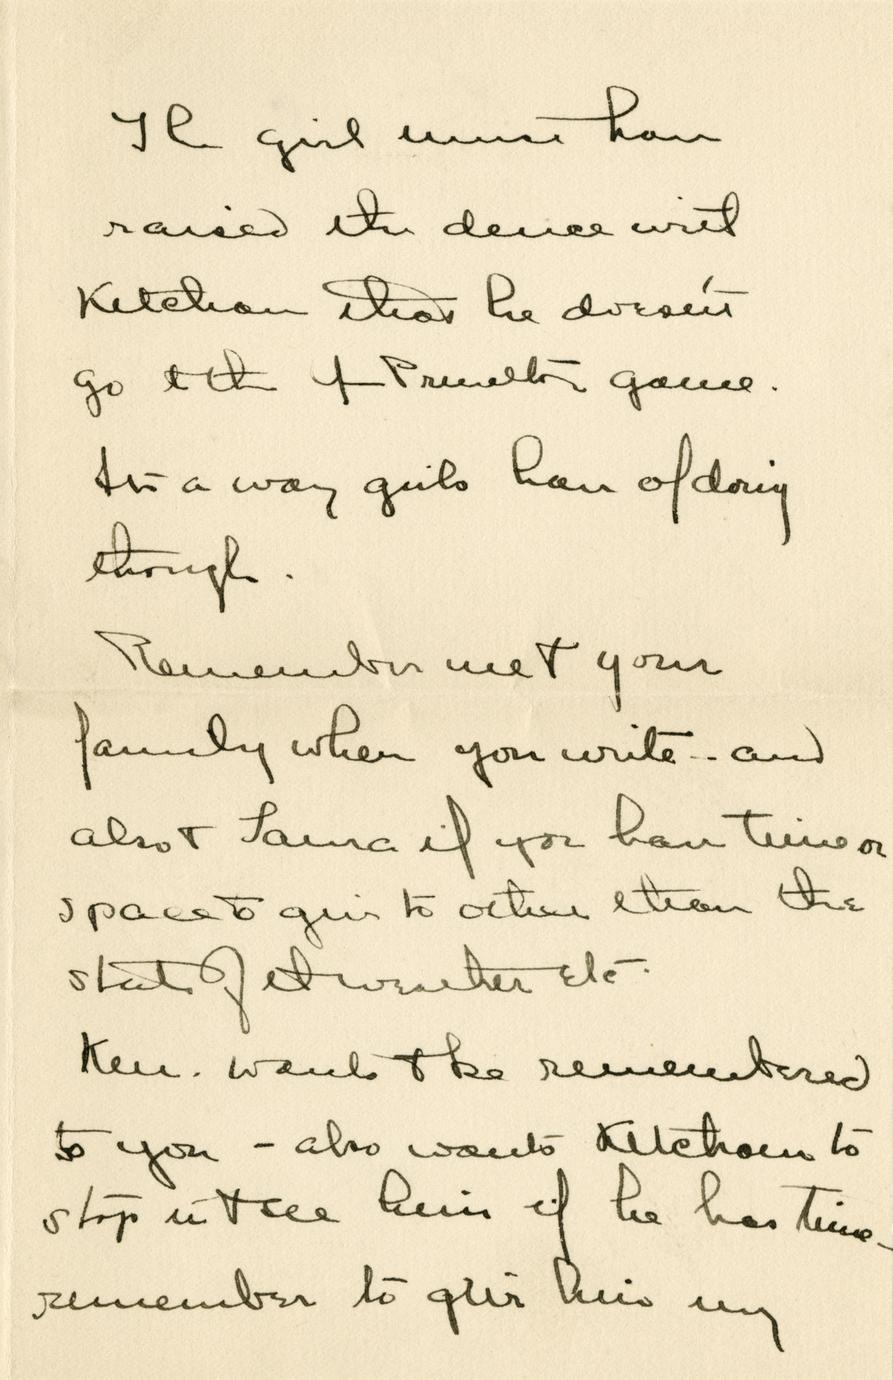 The girl must have
raised the dence with
Ketcham that he doesn't
go to the Princeton game.
Its a way girls have of doing
though.
Remember me to your
family when you write - and
also to Laura if you have time or
space to give to other than the
state of the weather etc.
Ken. wants to be remembered
to you - also wants Ketcham to
stop in to see him if he has time -
remember to give him my